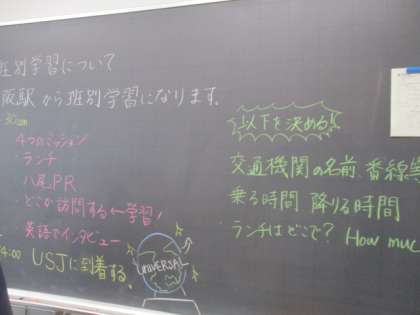 班別学習について
阪駅から班別学習になります。
30am
4つのミッション
・ランチ
・八尾PR
・どこか訪問する←学習！
・英語でインタビュー
4:00 USJに到着する。
UNIVERSAL
以下を決める！！
交通機関の名前、番線等
乗る時間 降りる時間
ランチはどこで？ How muc